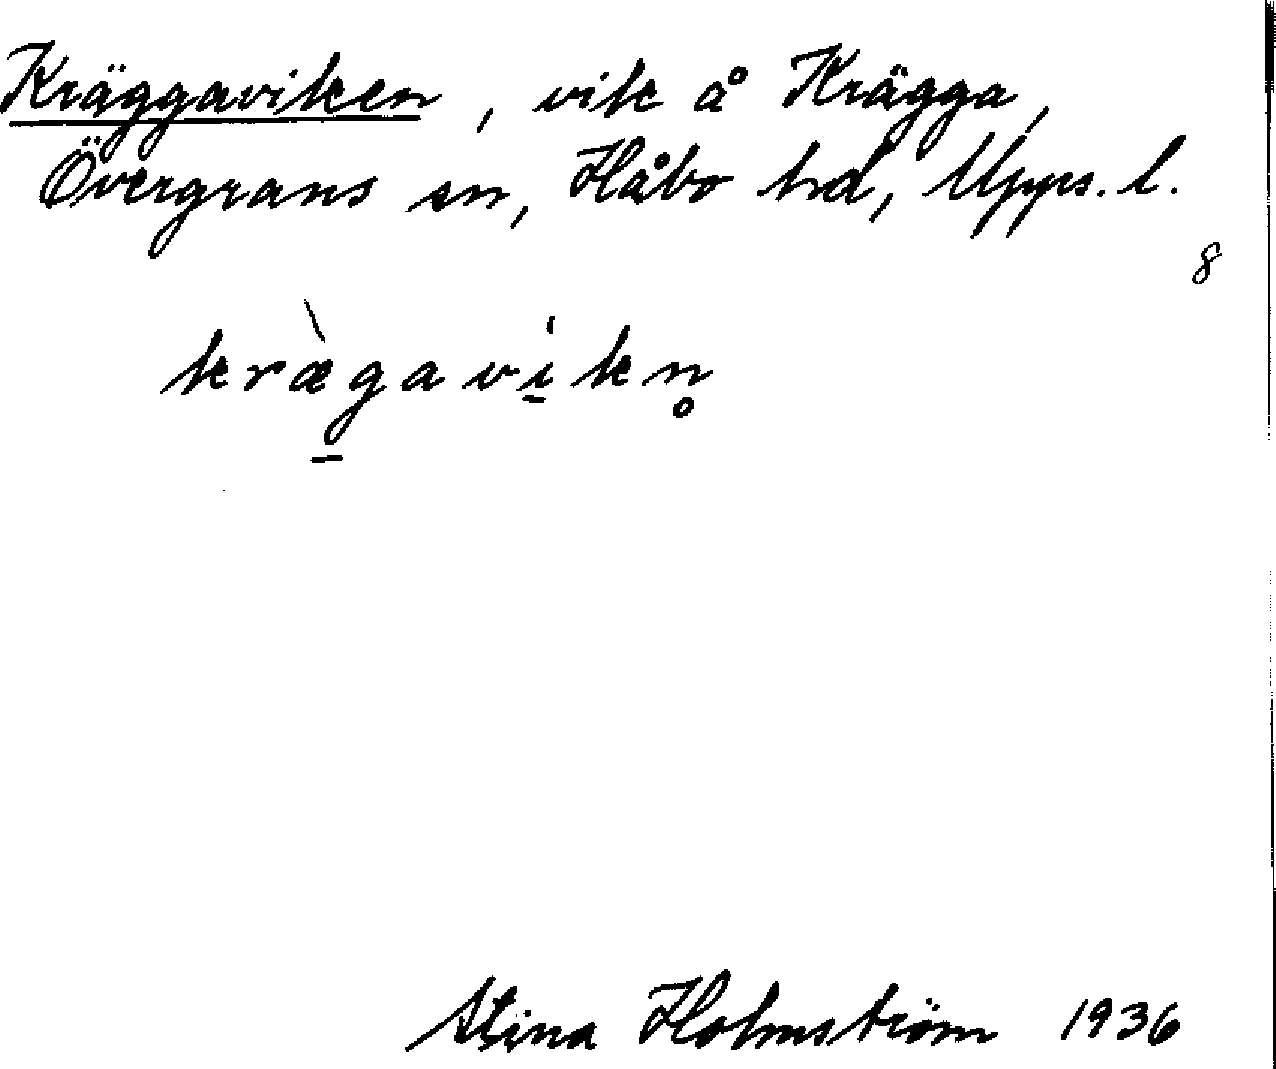 Kräggaviken, vik å Krägga,
Övergrans sn, Håbo hd, Upps. l.
8
kræ̀g̱avi̱̍kn̥
Stina Holmström 1936